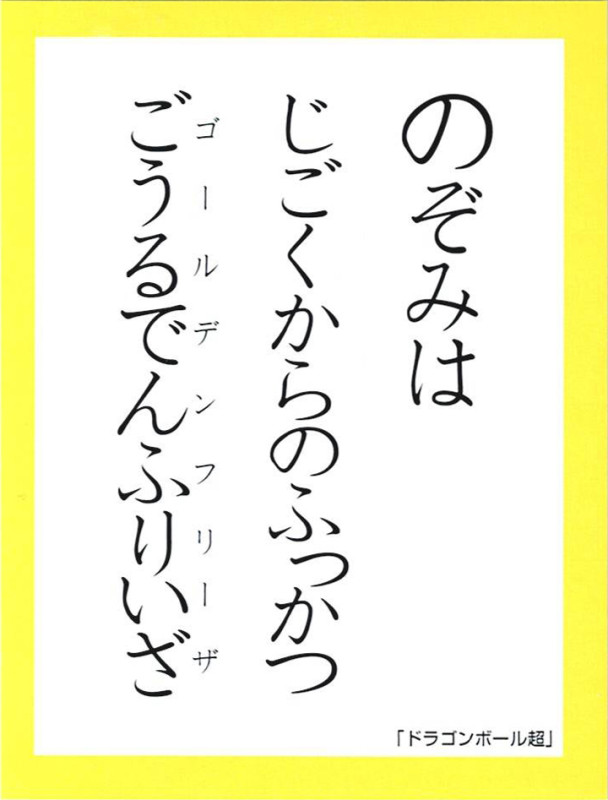 のぞみは
じごくからのふっかつ
ごうるでんふりいざ
ゴールデンフリーザ
「ドラゴンボール超」